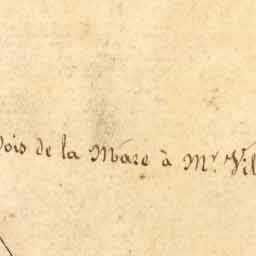 Bois de la Mare à Mr. Vil